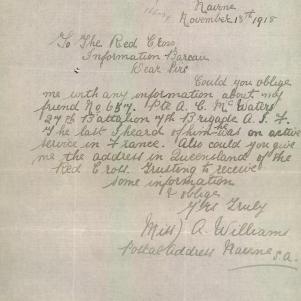 Nairne
November 18th 1918
To The Red Cross
Information Bureau
Dear Sirs
Could you oblige
me with any information about my
friend No 657. Pte A. C. McWaters
27th Battalion 7th Brigade A. I. F.
The last I heard of him he was on active
service in France. Also could you give
me the address in Queensland of the
Red Cross. Trusting to receive
some information
& oblige
Yrs Truly
Miss) A. Williams
Postal address Nairne
S.A.